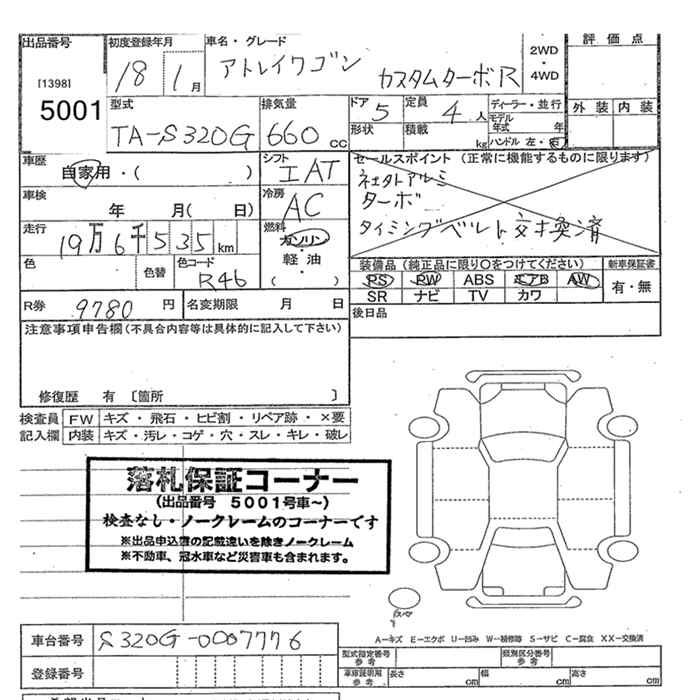 出品番号
[1398]
5001
初度登録年月
18 1月
車名・グレード
アトレイワゴン カスタムターボR
2WD
・
4WD
評価点
外装 内装
型式
TA-S320G
排気量
660 CC
ドア 5
定員 4人
ディーラー・並行
モデル年式 年
形状
積載 kg
ハンドル 左・右
車歴
自家用・( )
シフト
IAT
セールスポイント(正常に機能するものに限ります)
ターボ
タイミングベルト交換済
車検
年 月( 日)
冷房
AC
走行
19万6千535km
燃料
ガソリン
・
軽油
( )
色
色替
色コード
R46
装備品(純正品に限り○をつけてください)
新車保証書
PS PW ABS エアB AW
SR ナビ TV カワ
有・無
R券 9780円
名変期限 月 日
後日品
注意事項申告欄(不具合内容等は具体的に記入して下さい)
修復歴 有〔箇所 〕
検査員記入欄
FW キズ・飛石・ヒビ割・リペア跡・×要
内装 キズ・汚レ・コゲ・穴・スレ・キレ・破レ
落札保証コーナー
(出品番号 5001号車~)
検査なし・ノークレームのコーナーです
※出品申込書の記載違いを除きノークレーム
※不動車、冠水車など災害車も含まれます。
スペア
A-キズ E-エクボ U-凹み W-補修跡 S-サビ C-腐食 XX-交換済
車台番号 S320G-0007776
登録番号
型式指定番号
参考
類別区分番号
参考
車庫証明用
参考
長さ cm
幅 cm
高さ cm